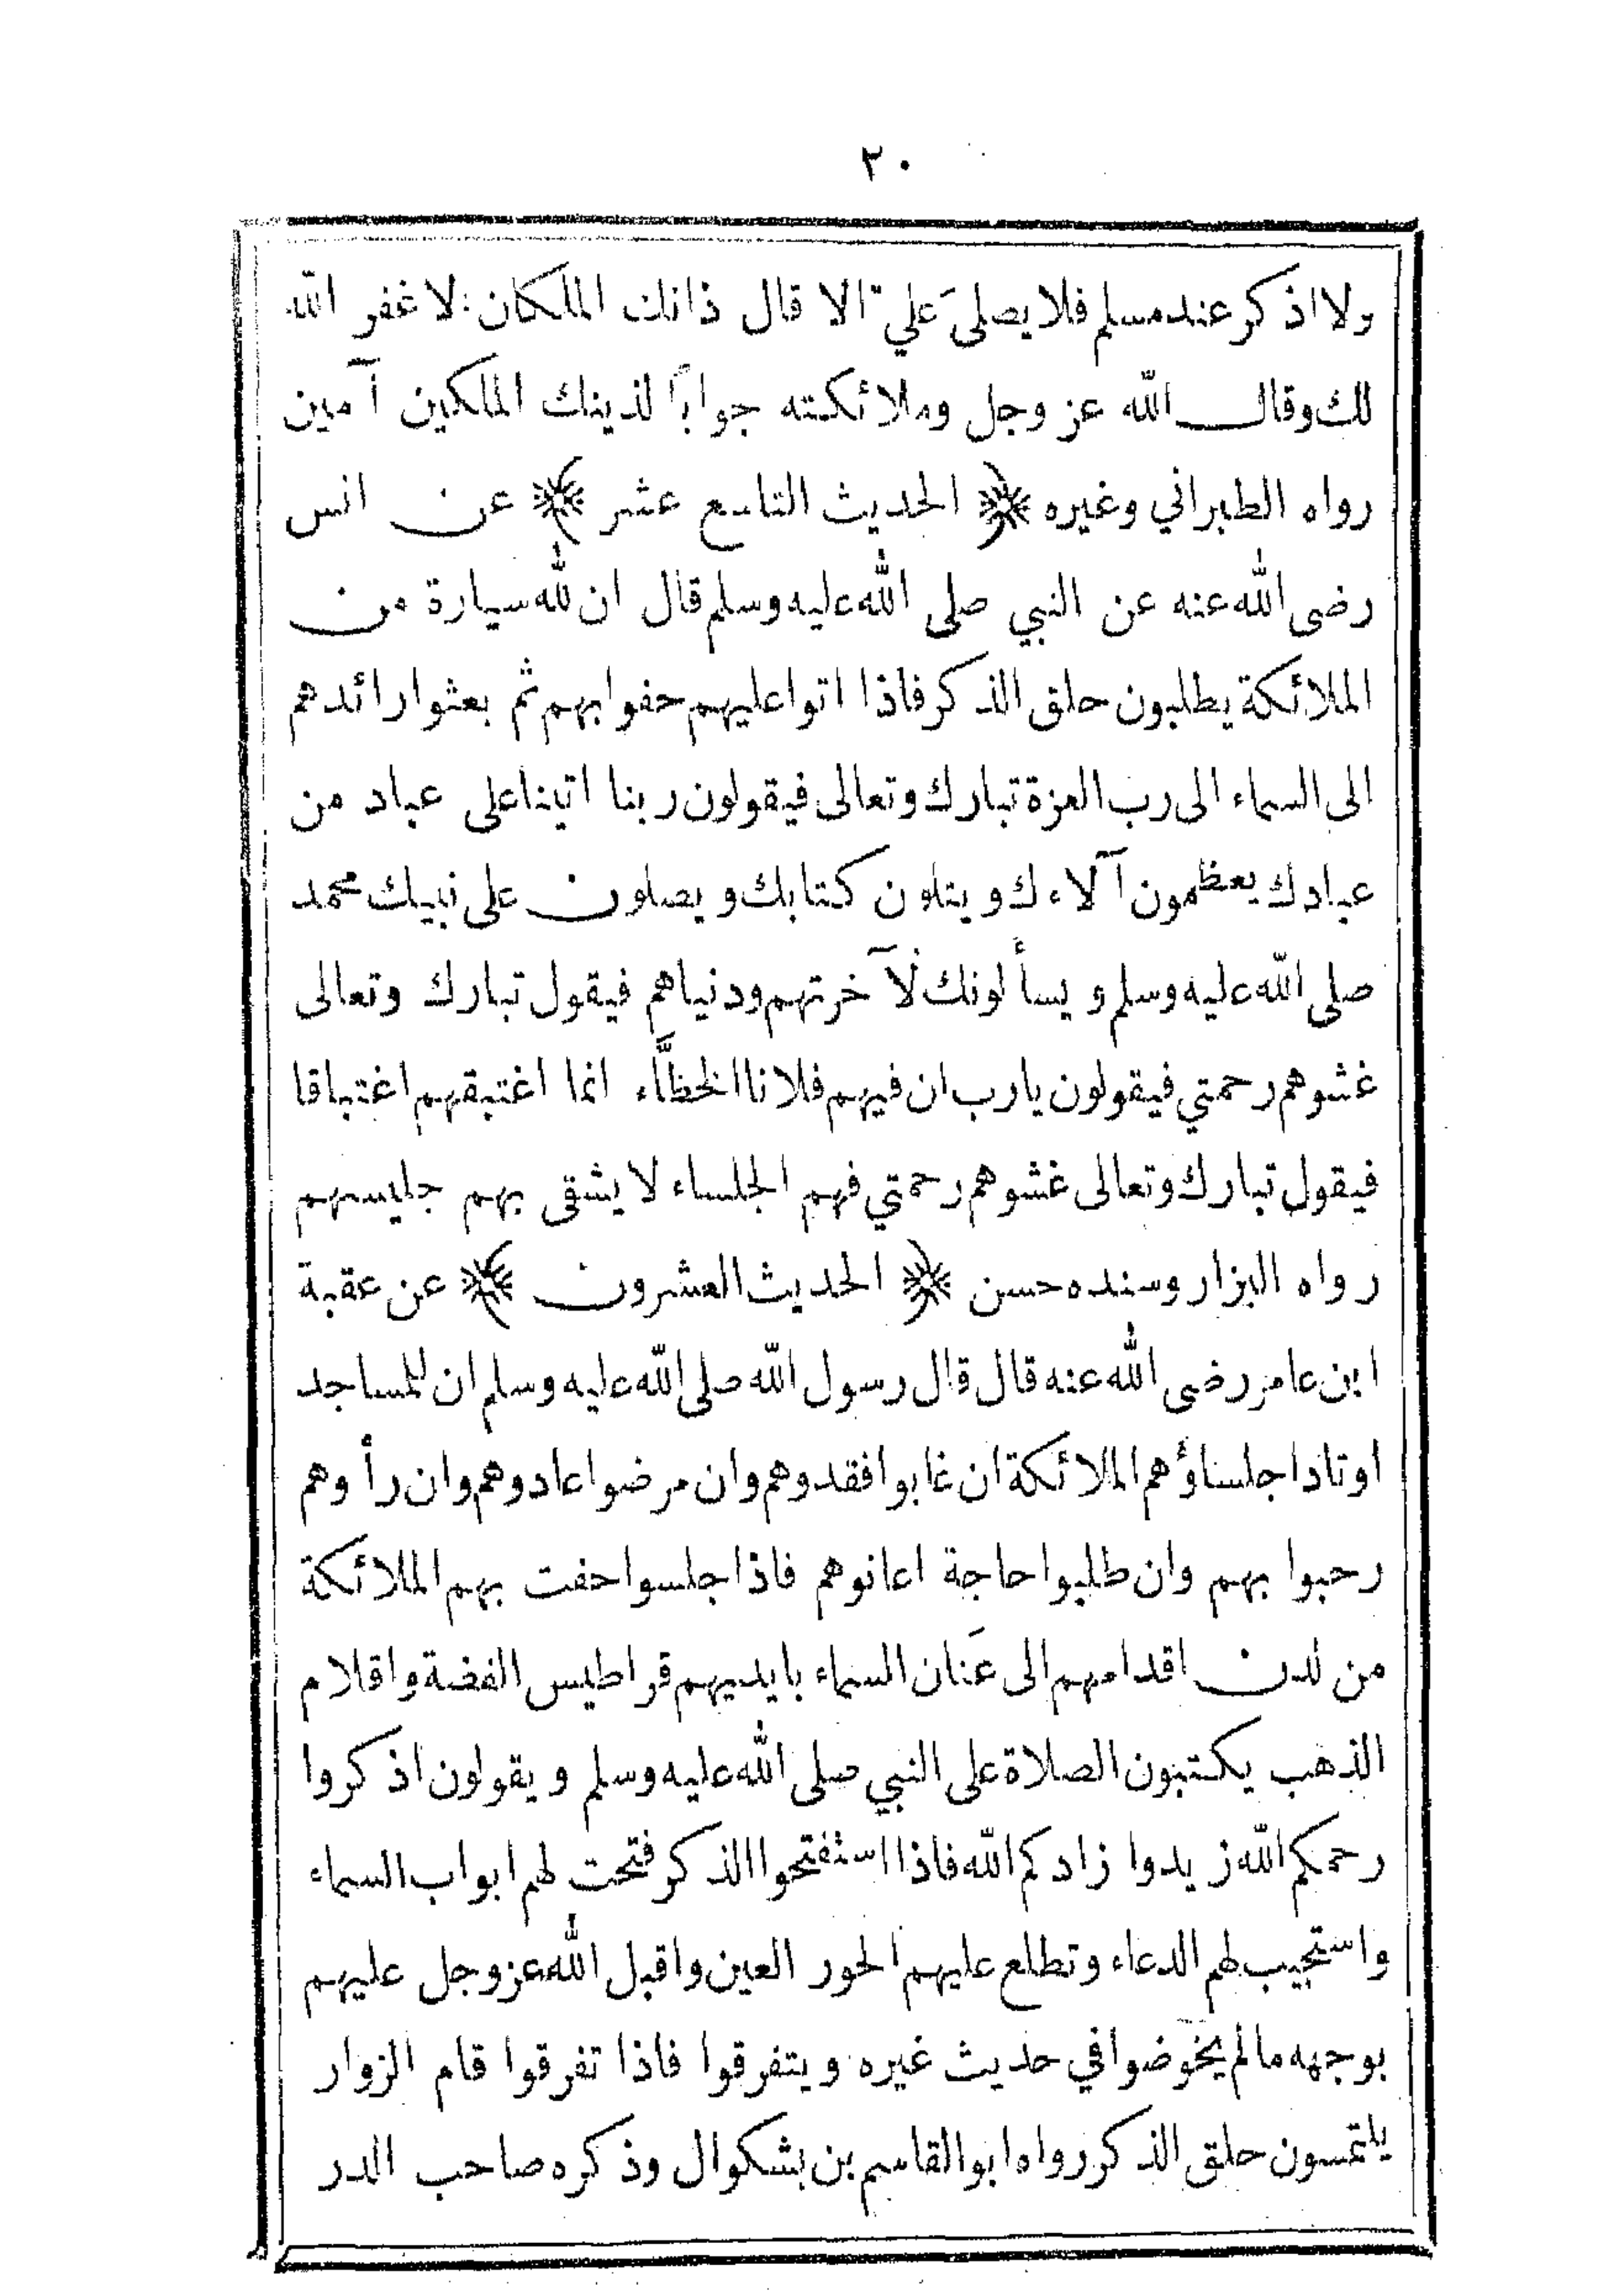 ٢٠
ولا اذكر عند مسلم فلا يصلي عَليّ الا قال ذانك الملكان: لا غفر الله
لك وقال الله عز وجل وملائكته جواباً لذينك الملكين آمين
رواه الطبراني وغيره ﴿ الحديث التاسع عشر ﴾ عن انس
رضى الله عنه عن النبي صلى الله عليه وسلم قال ان لله سيارة من
الملائكة يطلبون حلق الذكر فاذا اتوا عليهم حفوا بهم ثم بعثوا رائدهم
الى السماء الى رب العزة تبارك وتعالى فيقولون ربنا اتينا على عباد من
عبادك يعظمون آلاءك ويتلون كتابك ويصلون على نبيك محمد
صلى الله عليه وسلم ويسألونك لآخرتهم ودنياهم فيقول تبارك وتعالى
غشوهم رحمتي فيقولون يا رب ان فيهم فلانا الخظَّاء انما اغتبقهم اغتباقا
فيقول تبارك وتعالى غشوهم رحمتي فهم الجلساء لا يشقى بهم جليسهم
رواه البزار وسنده حسن ﴿ الحديث العشرون ﴾ عن عقبة
ابن عامر رضى الله عنه قال قال رسول الله صلى الله عليه وسلم ان للمساجد
اوتادا جلساؤهم الملائكة ان غابوا فقدوهم وان مرضوا عادوهم وان رأوهم
رحبوا بهم وان طلبوا حاجة اعانوهم فاذا جلسوا حفت بهم الملائكة
من لدن اقدامهم الى عَنان السماء بايديهم قراطيس الفضة واقلام
الذهب يكتبون الصلاة على النبي صلى الله عليه وسلم ويقولون اذكروا
رحمكم الله زيدوا زادكم الله فاذا استفتحوا الذكر فتحت لهم ابواب السماء
واستجيب لهم الدعاء وتطلع عليهم الحور العين واقبل الله عز وجل عليهم
بوجهه ما لم يخوضوا في حديث غيره ويتفرقوا فاذا تفرقوا قام الزوار
يلتمسون حلق الذكر رواه ابو القاسم بن بشكوال وذكره صاحب الدر